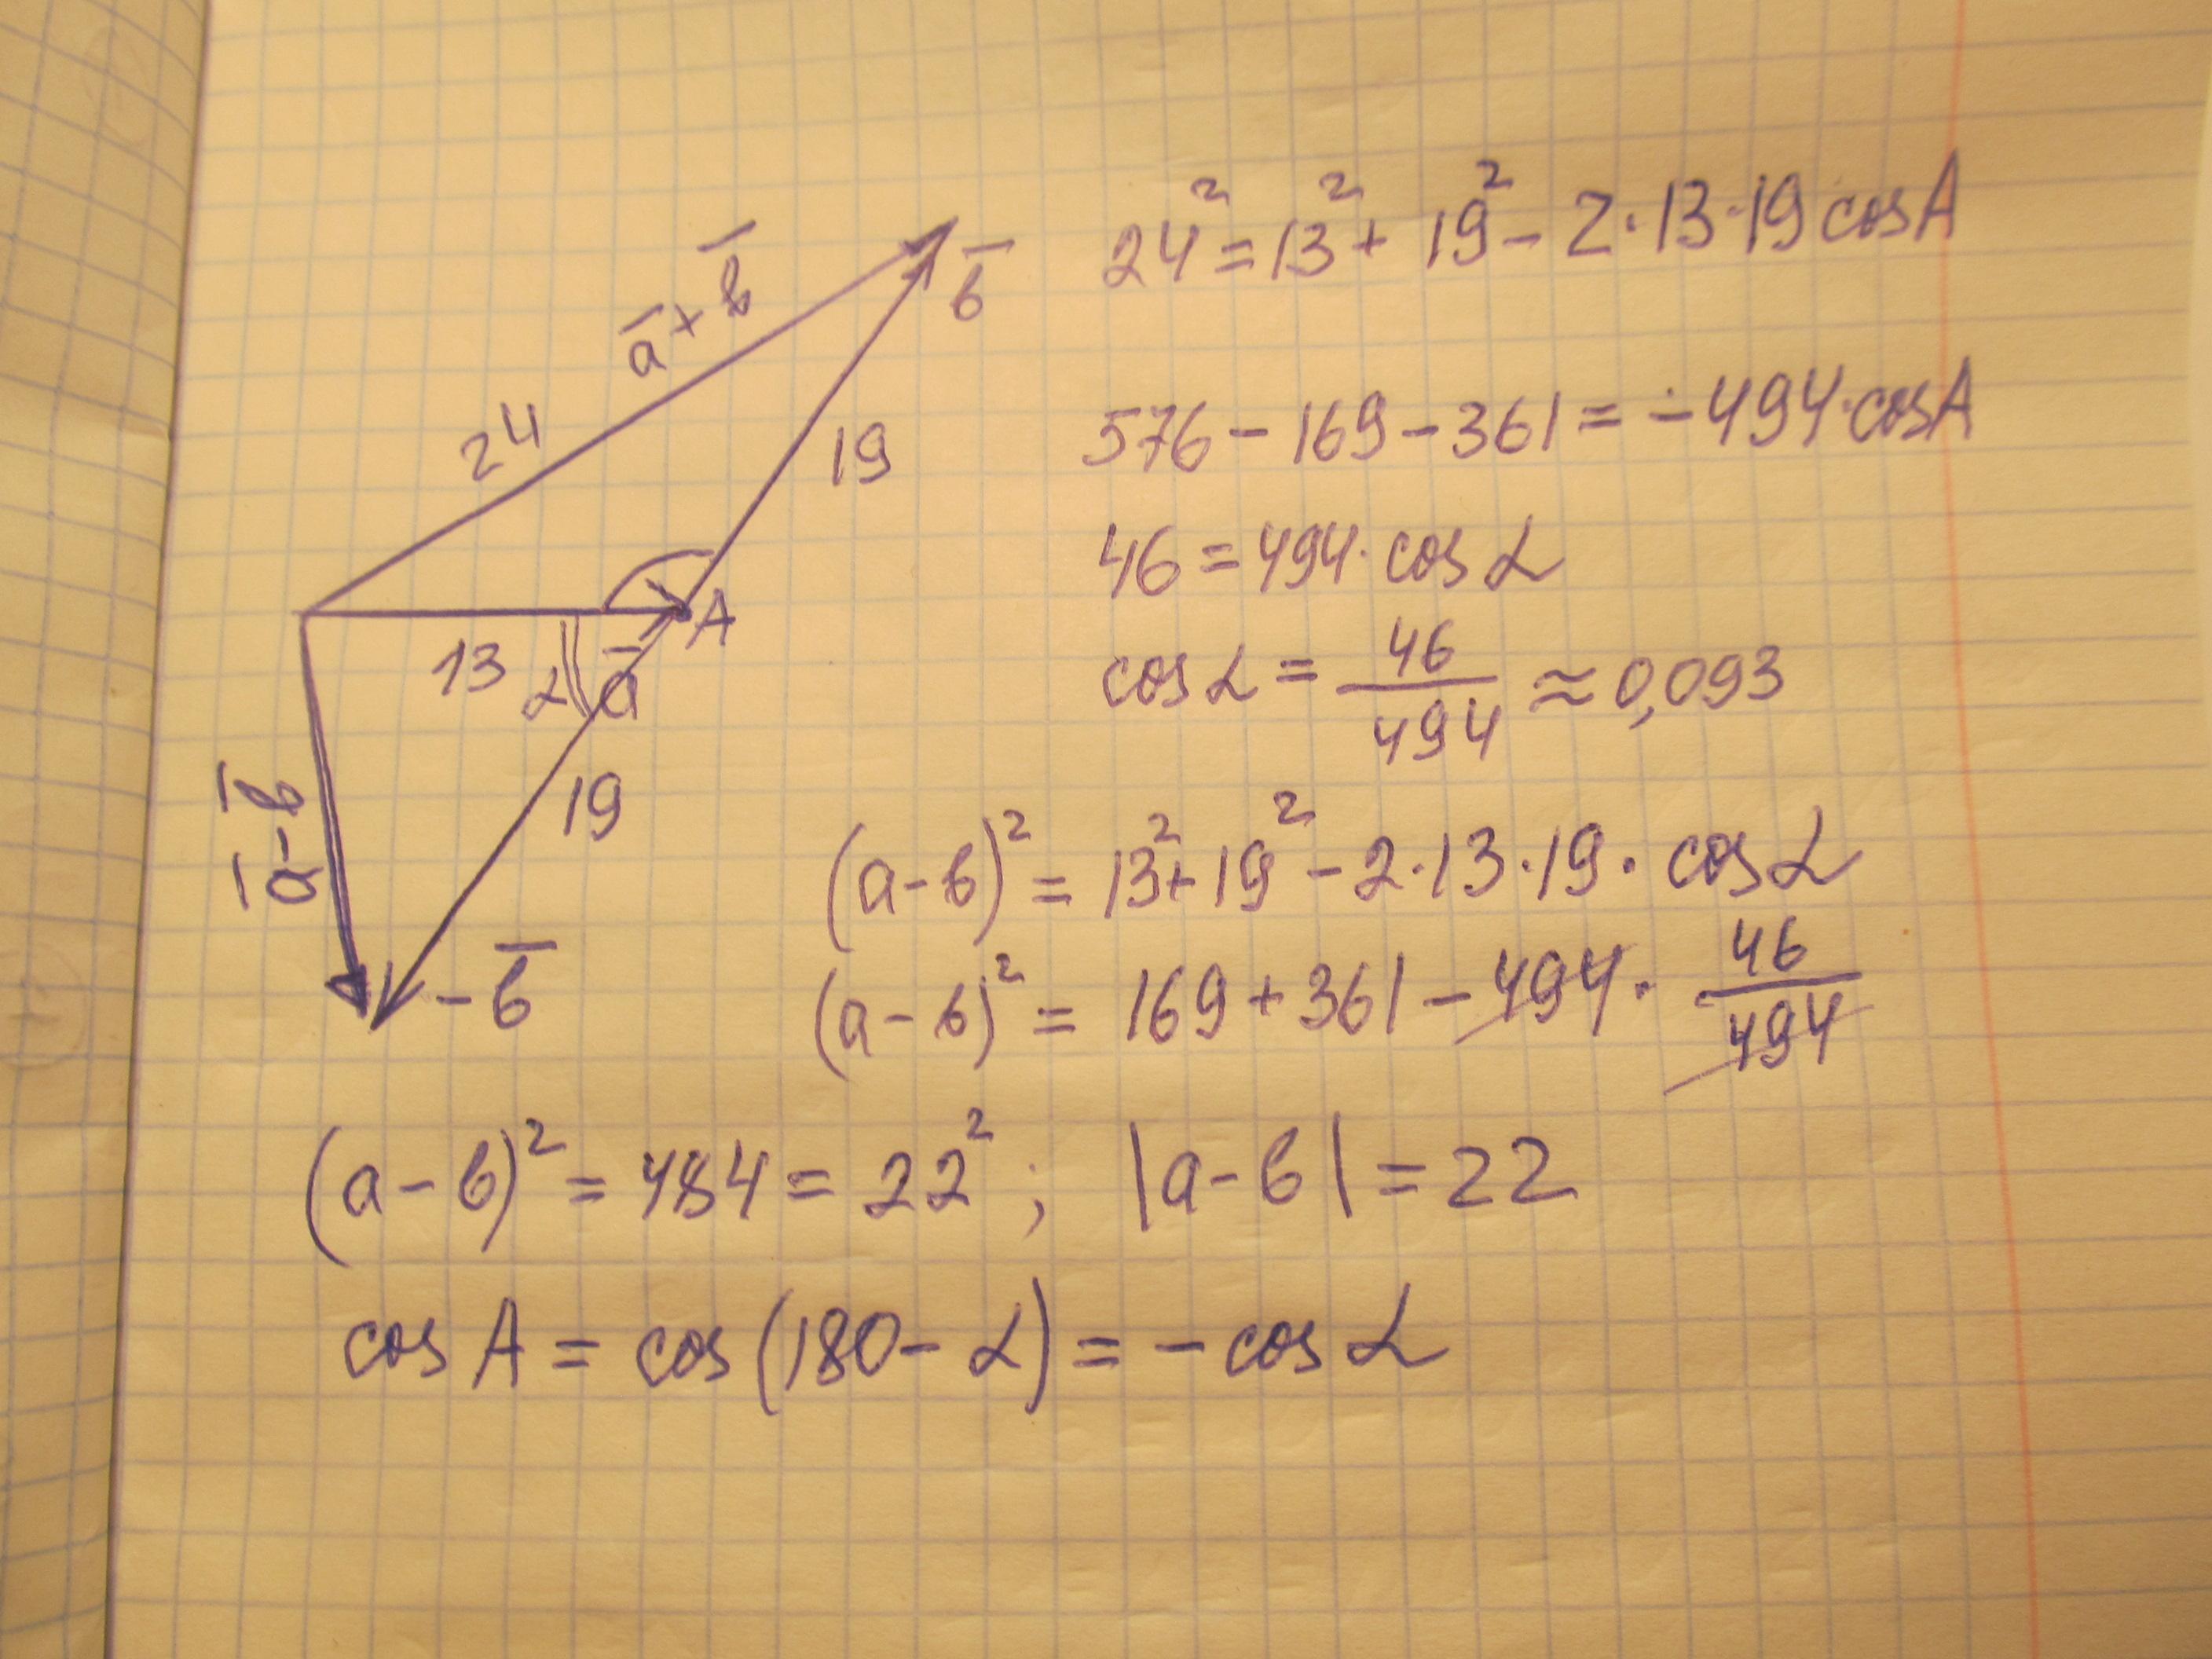 a̅ + b̅
b̅
24
19
A
13
α
a̅
19
a̅ - b̅
- b̅
24² = 13² + 19² - 2 · 13 · 19 cos A
576 - 169 - 361 = - 494 · cos A
46 = 494 · cos α
cos α = 46/494 ≈ 0,093
(a - b)² = 13² + 19² - 2 · 13 · 19 · cos α
(a - b)² = 169 + 361 - 494 · 46/494
(a - b)² = 484 = 22² ; |a - b| = 22
cos A = cos (180 - α) = - cos α